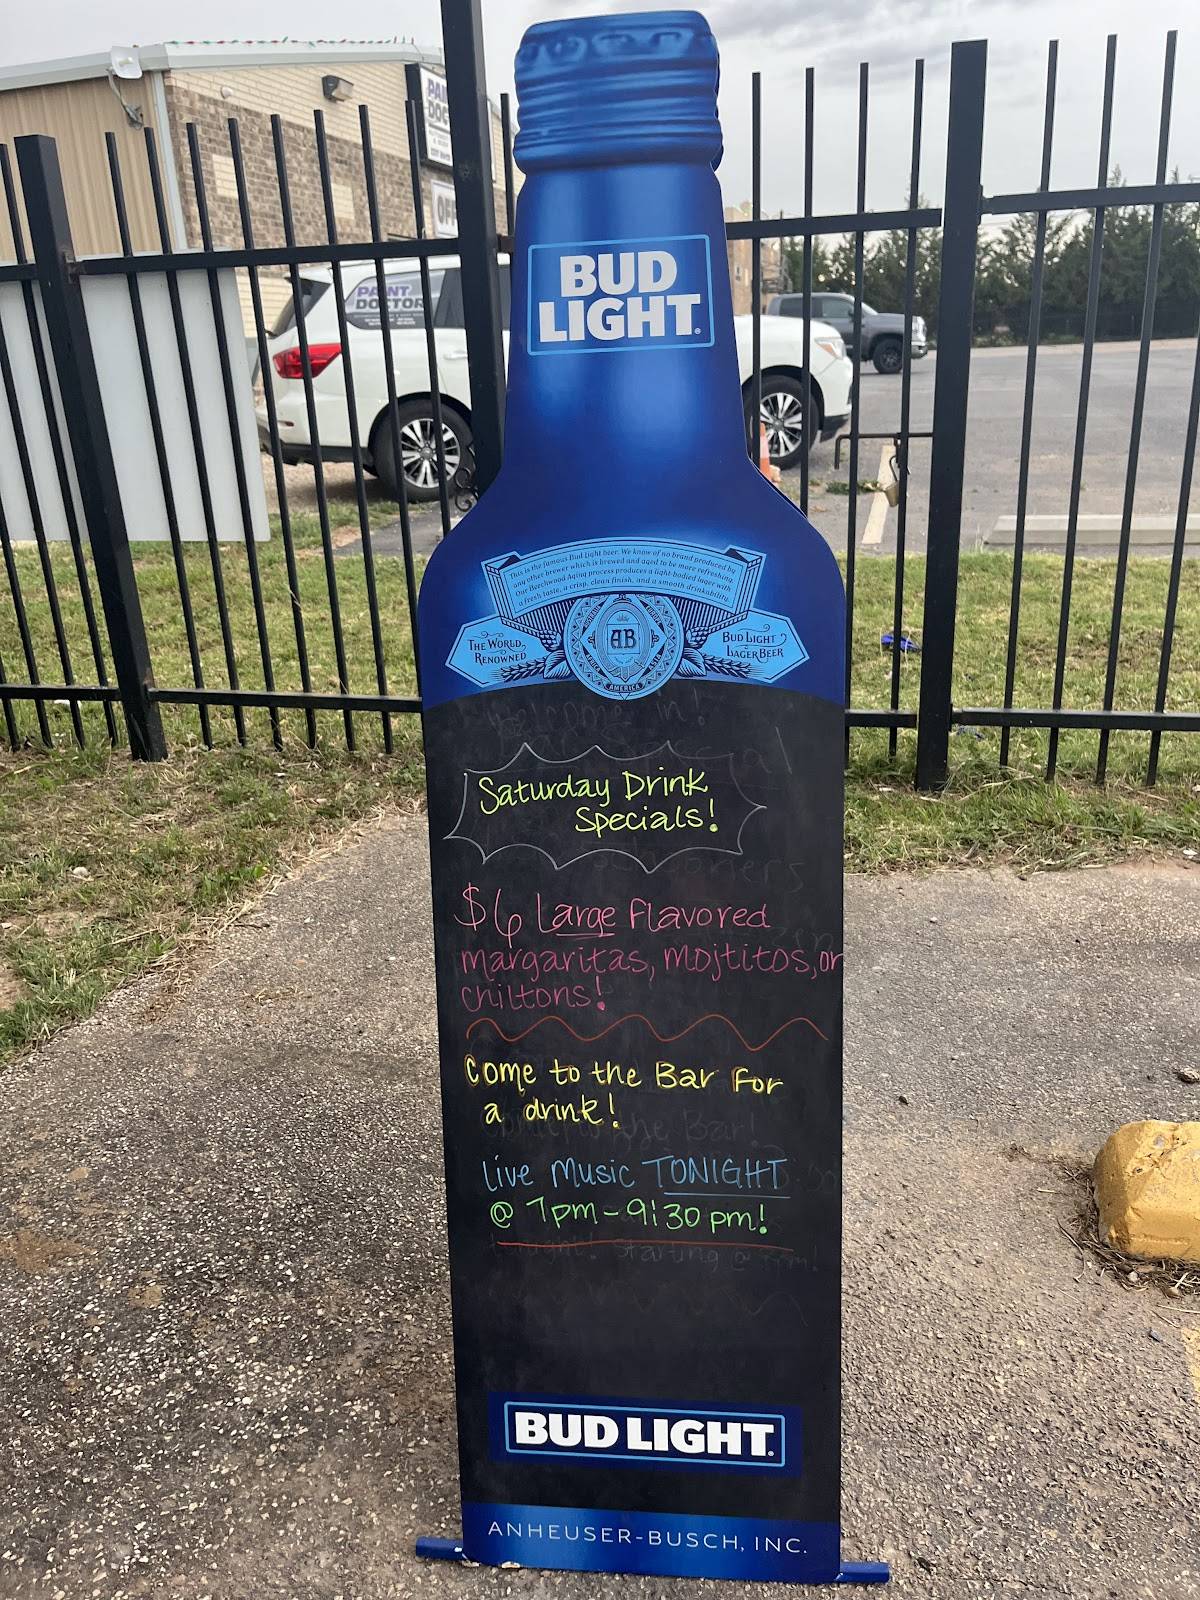 PAINT
DOCTOR
BUD
LIGHT
This is the famous Bud Light beer. We know of no brand produced by
any other brewer which is brewed and aged to be more refreshing.
Our Beechwood Aging process produces a light bodied lager with
a fresh taste, a crisp, clean finish, and a smooth drinkability.
THE WORLD
RENOWNED
AB
AMERICA
BUD LIGHT
LAGER BEER
Welcome in!
Saturday Drink
Specials!
$6 Large flavored
margaritas, mojtitos, or
chiltons!
Come to the Bar for
a drink!
Live Music TONIGHT
@ 7pm-9:30 pm!
tonight! Starting @
BUD LIGHT
ANHEUSER-BUSCH, INC.